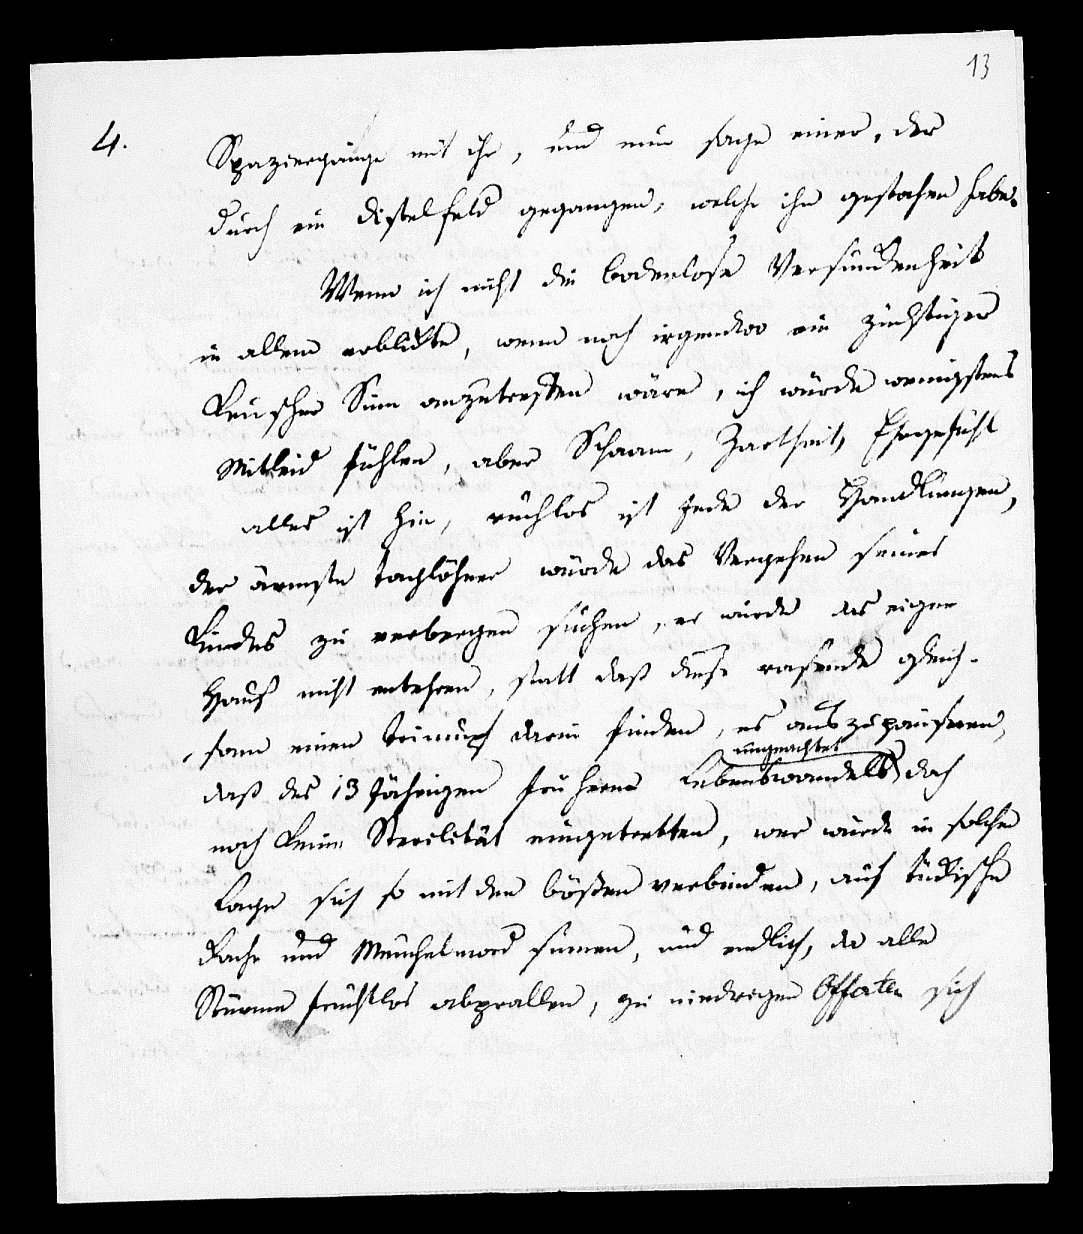 13
4.
Spaziergänge mit ihr, und nun sage einer, der
durch ein Distelfeld gegangen, welche ihn gestochen habe.
Wenn ich nicht die bodenlose Versunkenheit
in allem erblickte, wenn noch irgendwo ein züchtiger
keuscher Sinn anzutreffen wäre, ich würde wenigstens
Mitleid fühlen, aber Schaam, Zartheit, Ehrgefühl
alles ist hin, ruchlos ist jede der Handlungen,
der ärmste Taglöhner würde das Vergehen seines
Kindes zu verbergen suchen, er würde das eigne
Hauß nicht entehren, statt daß diese rasende gleich-
sam einen Triumpf darin finden, es auszuposaunen,
ungeachtet
daß des 13 Jährigen frühern Lebenswandels doch
noch keine Sterilität eingetretten, wer würde in solcher
Lage sich so mit den bößen verbinden, auf tückische
Rache und Meuchelmord sinnen, und endlich, da alle
Stürme fruchtlos abprallen, zu niedrigen Offerten sich